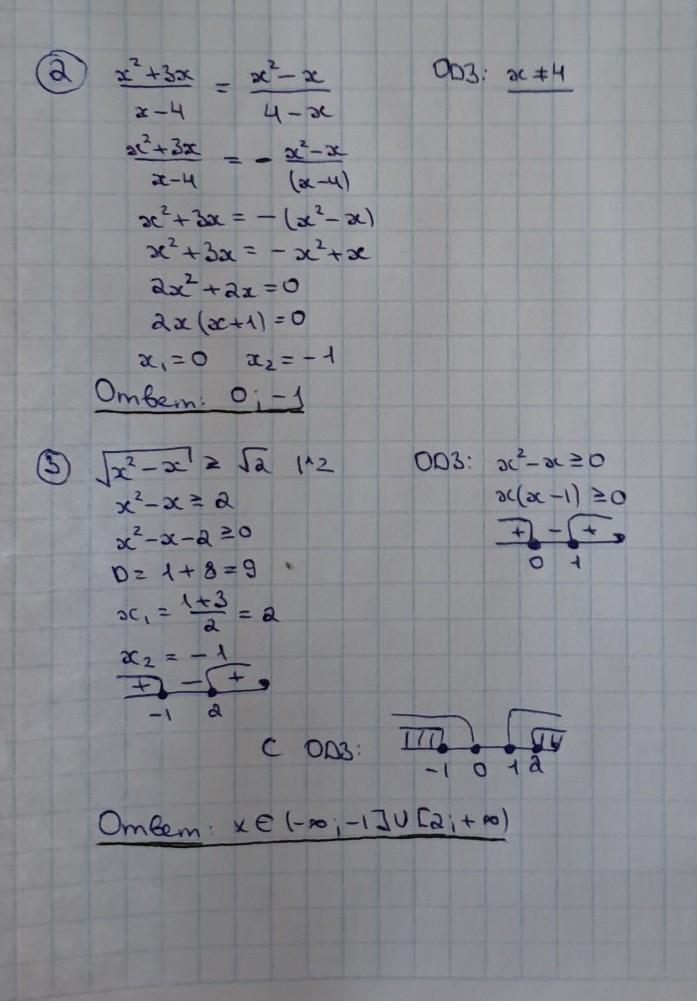 ② (x²+3x)/(x-4) = (x²-x)/(4-x) ОДЗ: x≠4
(x²+3x)/(x-4) = - (x²-x)/((x-4))
x²+3x = -(x²-x)
x²+3x = -x²+x
2x²+2x=0
2x(x+1)=0
x₁=0 x₂=-1
Ответ: 0; -1
③ √(x²-x) ≥ √2 |^2 ОДЗ: x²-x≥0
x²-x≥2 x(x-1)≥0
x²-x-2≥0 + - +
D=1+8=9 0 1
x₁ = (1+3)/2 = 2
x₂ = -1
+ - +
-1 2
С ОДЗ: -1 0 1 2
Ответ: x∈(-∞;-1]∪[2;+∞)